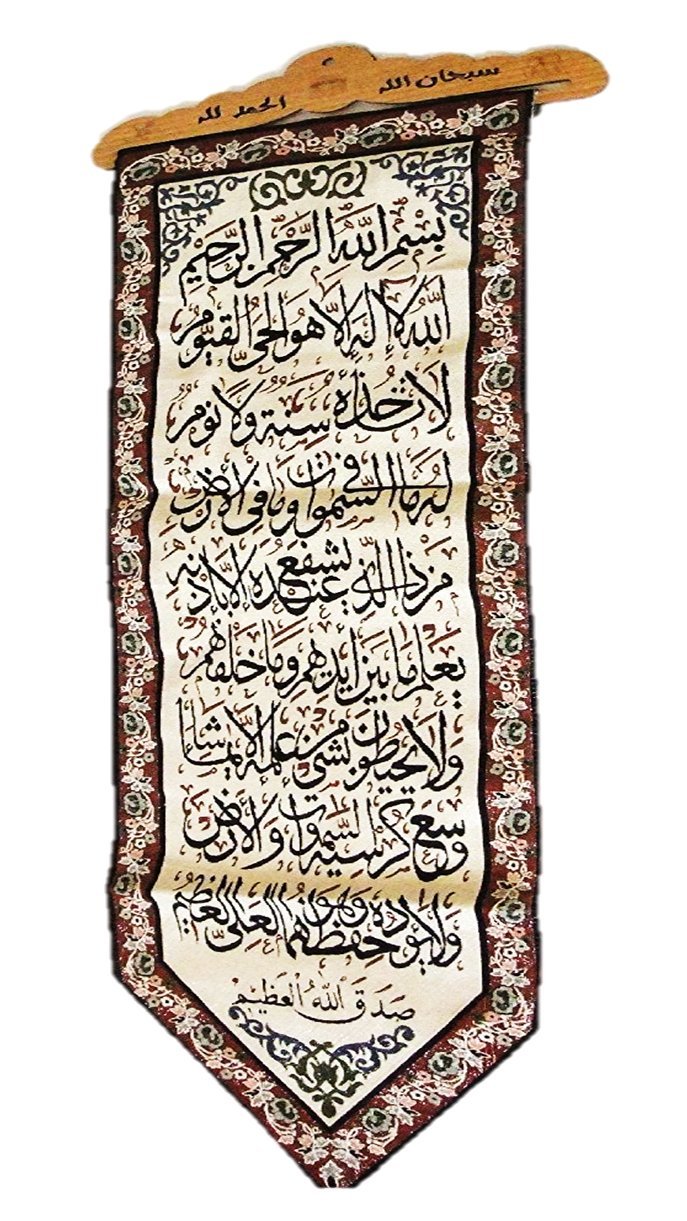 سبحان الله الحمد لله
بِسْمِ اللهِ الرَّحْمٰنِ الرَّحِيْمِ
اَللهُ لَا إِلٰهَ إِلَّا هُوَ الْحَيُّ الْقَيُّومُ
لَا تَأْخُذُهُ سِنَةٌ وَلَا نَوْمٌ
لَهُ مَا فِي السَّمٰوَاتِ وَمَا فِي الْأَرْضِ
مَنْ ذَا الَّذِي يَشْفَعُ عِنْدَهُ إِلَّا بِإِذْنِهِ
يَعْلَمُ مَا بَيْنَ أَيْدِيهِمْ وَمَا خَلْفَهُمْ
وَلَا يُحِيطُونَ بِشَيْءٍ مِنْ عِلْمِهِ إِلَّا بِمَا شَاءَ
وَسِعَ كُرْسِيُّهُ السَّمٰوَاتِ وَالْأَرْضَ
وَلَا يَئُودُهُ حِفْظُهُمَا وَهُوَ الْعَلِيُّ الْعَظِيمُ
صَدَقَ اللهُ الْعَظِيْمُ